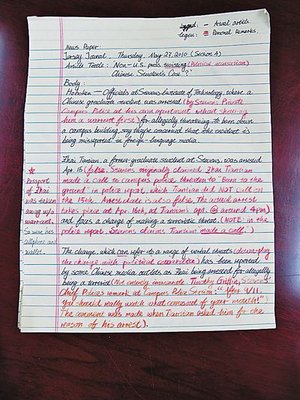 Legend: - Actual article.
- Personal Remarks.
News Paper:
Jersey Journal, Thursday, May 27, 2010 (Section A)
Article Title: Non-U.S. press twisting
Chinese Student's Case?"
Body
Hoboken - Officials at Stevens Institute of Technology, where a
Chinese graduate student was arrested (by Stevens Private
Campus Police at his own apartment without showing
him a warrant first) for allegedly threatening to burn down
a campus building, say they're concerned that the incident is
being misreported in foreign-language media.
Zhai Tianxian, a former graduate student at Stevens, was arrested
Apr. 15 (false. Stevens originally claimed that Tianxian
made a call to campus police threaten to "burn to the
ground" in police report, which Tianxian did NOT call on
the 15th. Arrest date is also false. The actual arrest
takes place at Apr. 16th, at Tianxian's apt. @ around 4pm)
and faces a charge of making a terroristic threat. (NOTE: in the
police report, Stevens claims Tianxian made a call.)
Passport
of Zhai
was taken
away w/o
warrant.
So were his
cellphone and
wallet.
The charge, which can refer to a range of verbal threats (down-play
the charge with political correctness) has been reported
by some Chinese media outlets as Zhai being arrested for allegedly
being a terrorist (Not entirely inaccurate, Timothy Griffin, Stevens
Chief Police's remark at Campus Police Station: "After 9/11,
You should really watch what comes out of your mouth!"
The comment was made when Tianxian asked him for the
reason of his arrest).